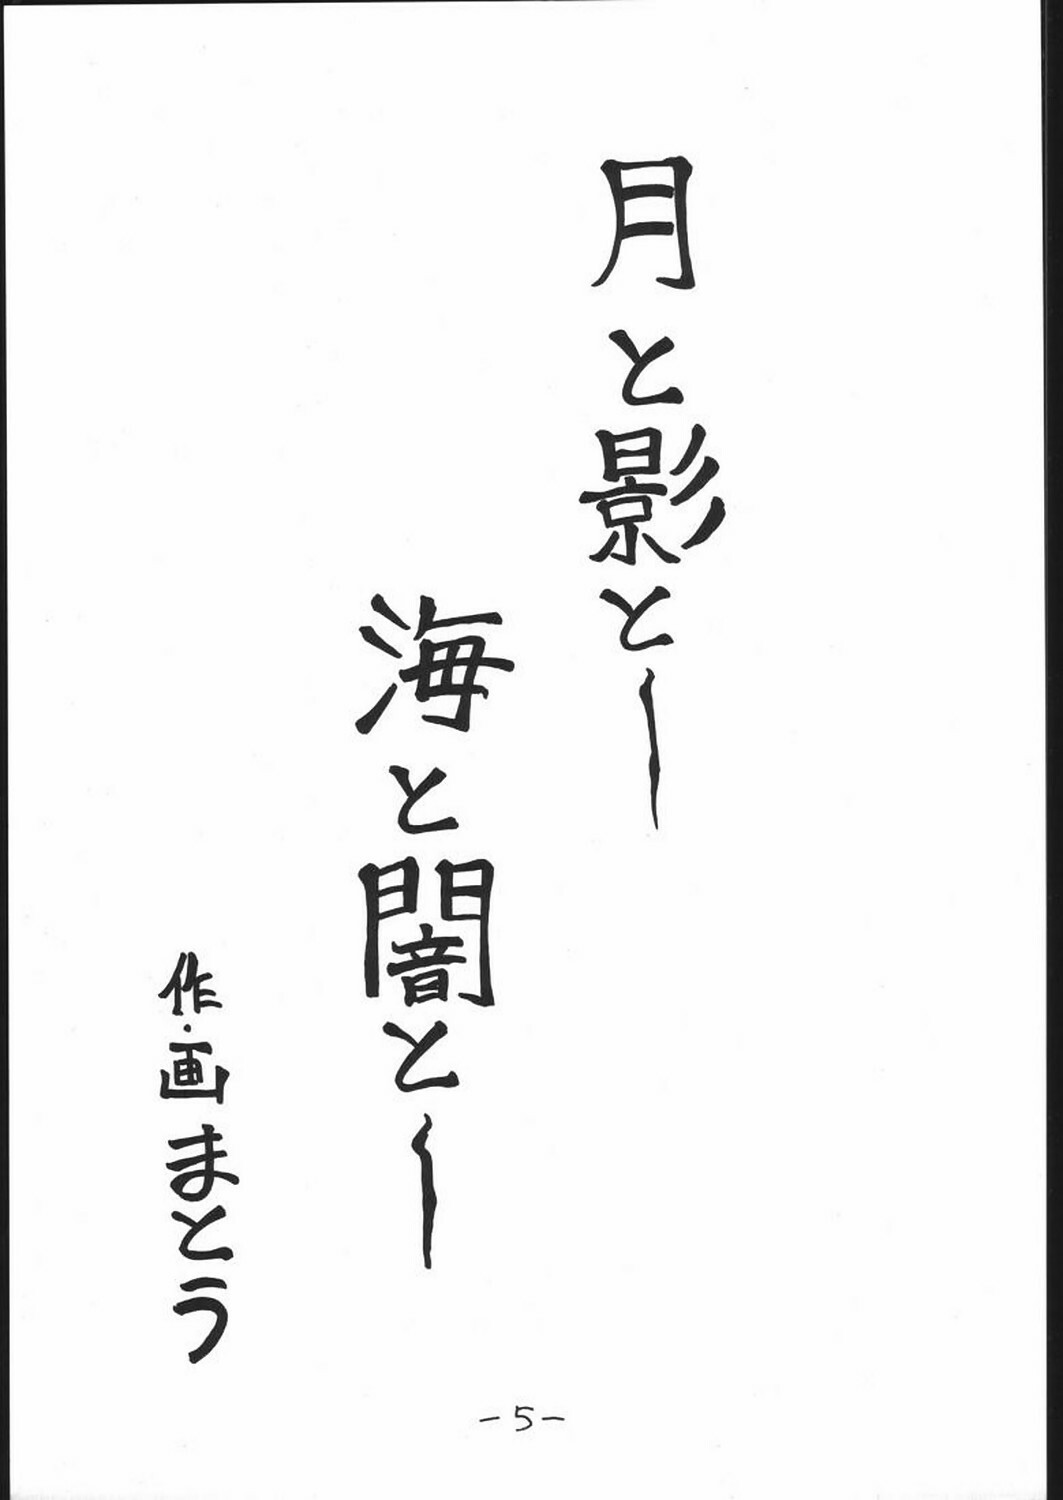 月と影と―
海と闇と―
作・画まとう
-5-